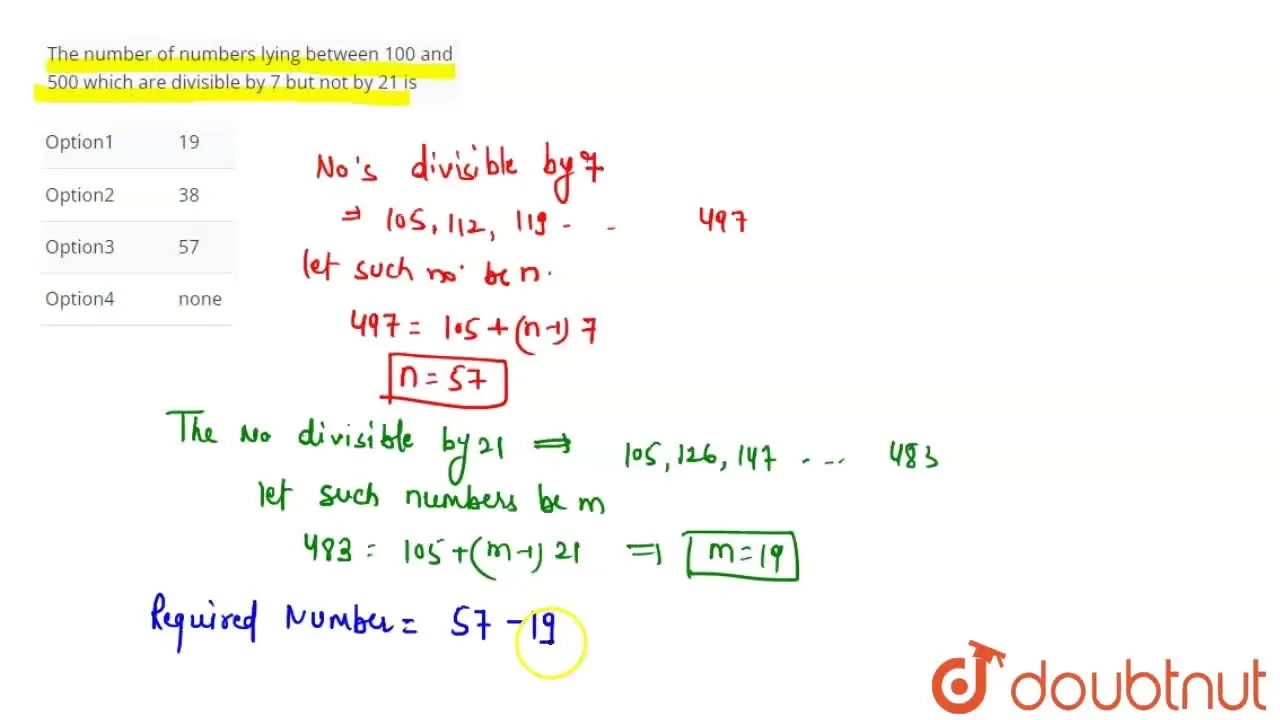 The number of numbers lying between 100 and
500 which are divisible by 7 but not by 21 is
Option1 19
Option2 38
Option3 57
Option4 none
No's divisible by 7
⇒ 105, 112, 119 - - 497
let such no' be n.
497 = 105 + (n-1) 7
n = 57
The No divisible by 21 ⇒ 105, 126, 147 ... 483
let such numbers be m
483 = 105 + (m-1) 21 ⇒ m = 19
Required Number = 57 - 19
doubtnut